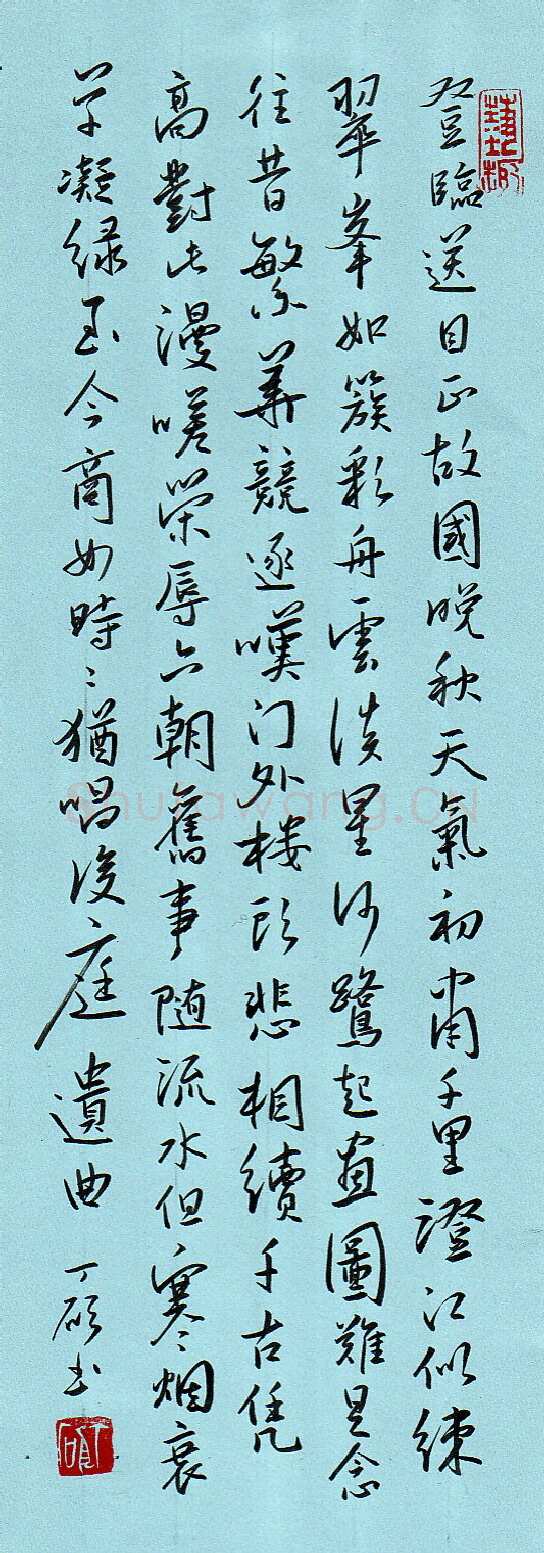 登臨送目正故國晚秋天氣初肅千里澄江似練
翠峯如簇彩舟雲淡星河鷺起畫圖難足念
往昔繁華競逐嘆门外楼头悲相續千古凭
高對此漫嗟榮辱六朝舊事随流水但寒烟衰
草凝绿至今商女時〻猶唱後庭遺曲 丁硕书
Shufawang.CN